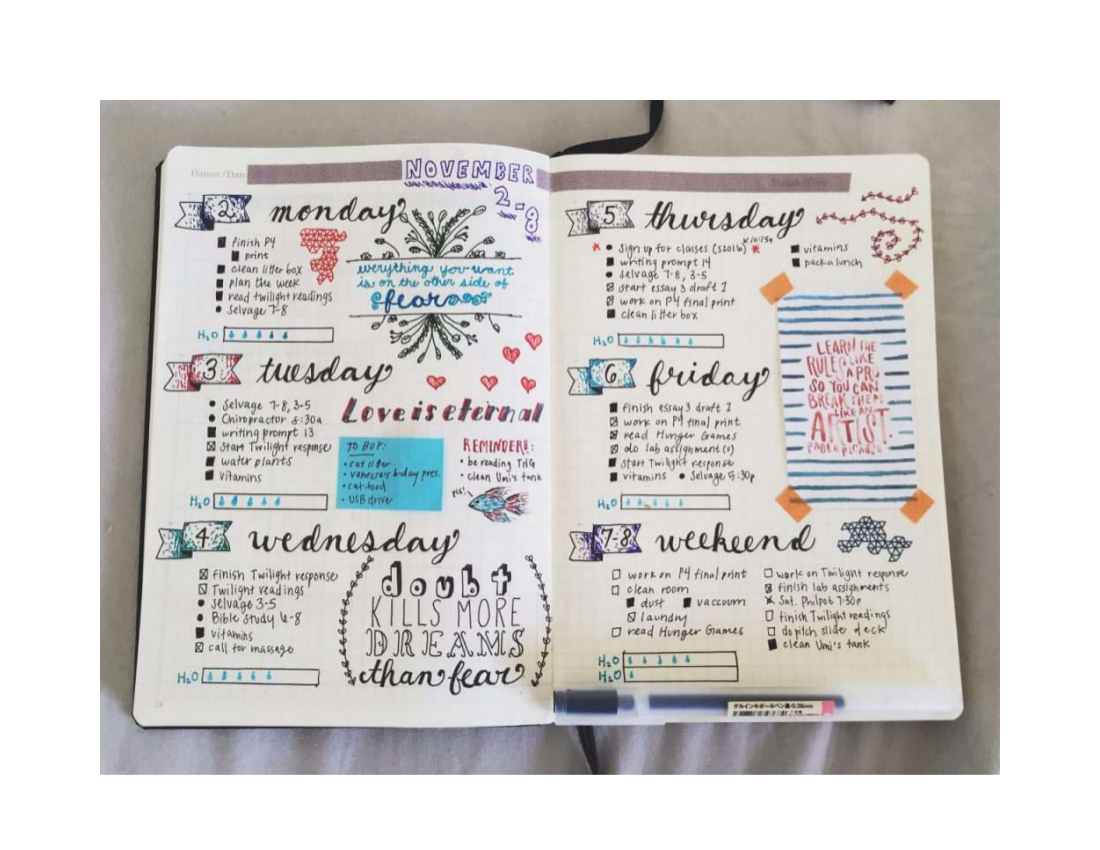 Datum / Date
NOVEMBER
2-8
2 monday
finish P4
print
clean litter box
plan the week
read twilight readings
Selvage 7-8
H₂O
everything you want
is on the other side of
fear
3 tuesday
Selvage 7-8, 3-5
Chiropractor 8:30a
writing prompt 13
Start Twilight response
water plants
vitamins
H₂O
Love is eternal
TO BUY:
• cat litter
• vanessa's b-day pres.
• cat food
• USB drive
REMINDERS:
• be reading THG
• clean Umi's tank
4 wednesday
finish Twilight response
Twilight readings
Selvage 3-5
Bible Study 6-8
vitamins
call for massage
H₂O
doubt
KILLS MORE
DREAMS
than fear
5 thursday
Sign up for classes
writing prompt 14
Selvage 7-8, 3-5
start essay 3 draft 2
work on P4 final print
clean litter box
vitamins
pack a lunch
H₂O
6 friday
finish essay 3 draft 2
work on P4 final print
read Hunger Games
do lab assignment(s)
start Twilight response
vitamins • Selvage 5:30p
H₂O
LEARN THE
RULES LIKE
A PRO
SO YOU CAN
BREAK THEM
LIKE AN
ARTIST.
PABLO PICASSO
7-8 weekend
work on P4 final print
clean room
dust vaccuum
laundry
read Hunger Games
work on Twilight response
finish lab assignments
Sat. Philpot 7:30p
finish Twilight readings
do pitch slide deck
clean Umi's tank
H₂O
H₂O
ゲルインキボールペン
0.38mm